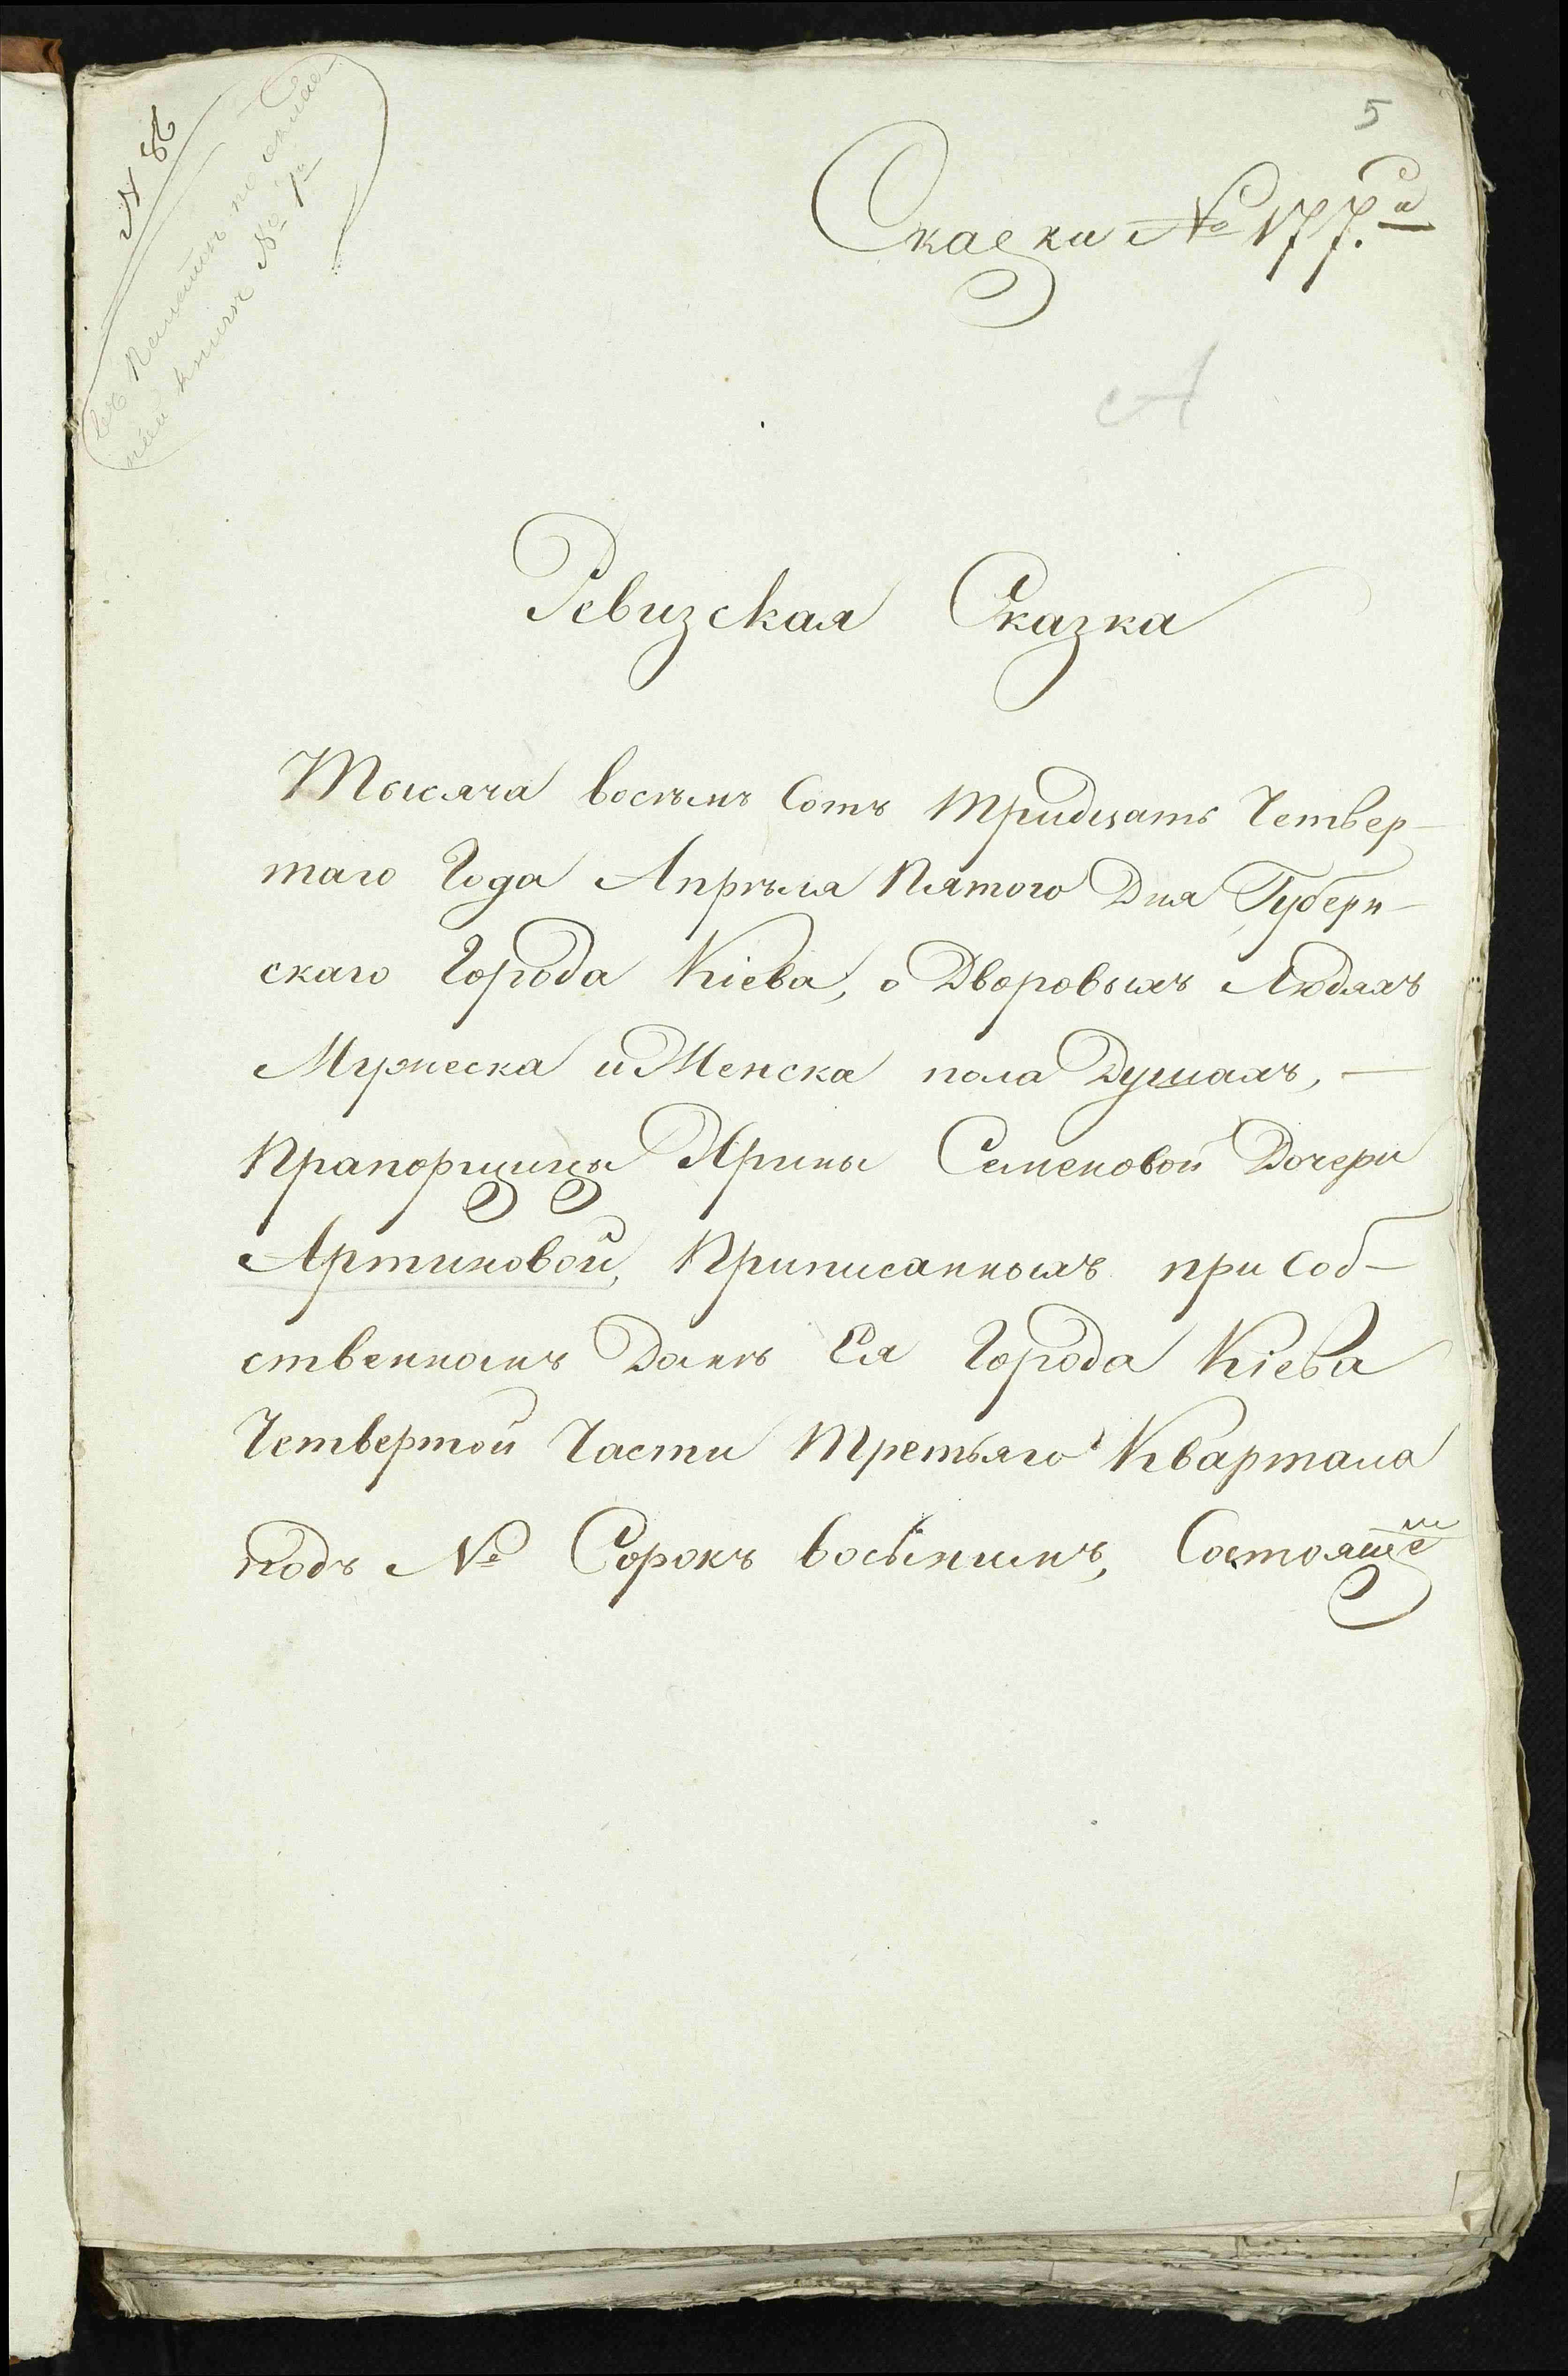 5
Сказки № 177.й
А
Ревизская Сказка
Тысяча восемь Сотъ тридцать Четвер-
таго Года Апрѣля Пятого Дня Губерн-
скаго Города Кіева, о Дворовыхъ Людяхъ
Мужеска и Женска пола Душахъ, —
Прапорщицы Ярины Семеновой Дочери
Артиковой, Приписанныхъ при Соб-
ственномъ Домѣ Ея Города Кіева
Четвертой Части Третьяго Квартала
подъ № Сорокъ восьмимъ, Состояще м